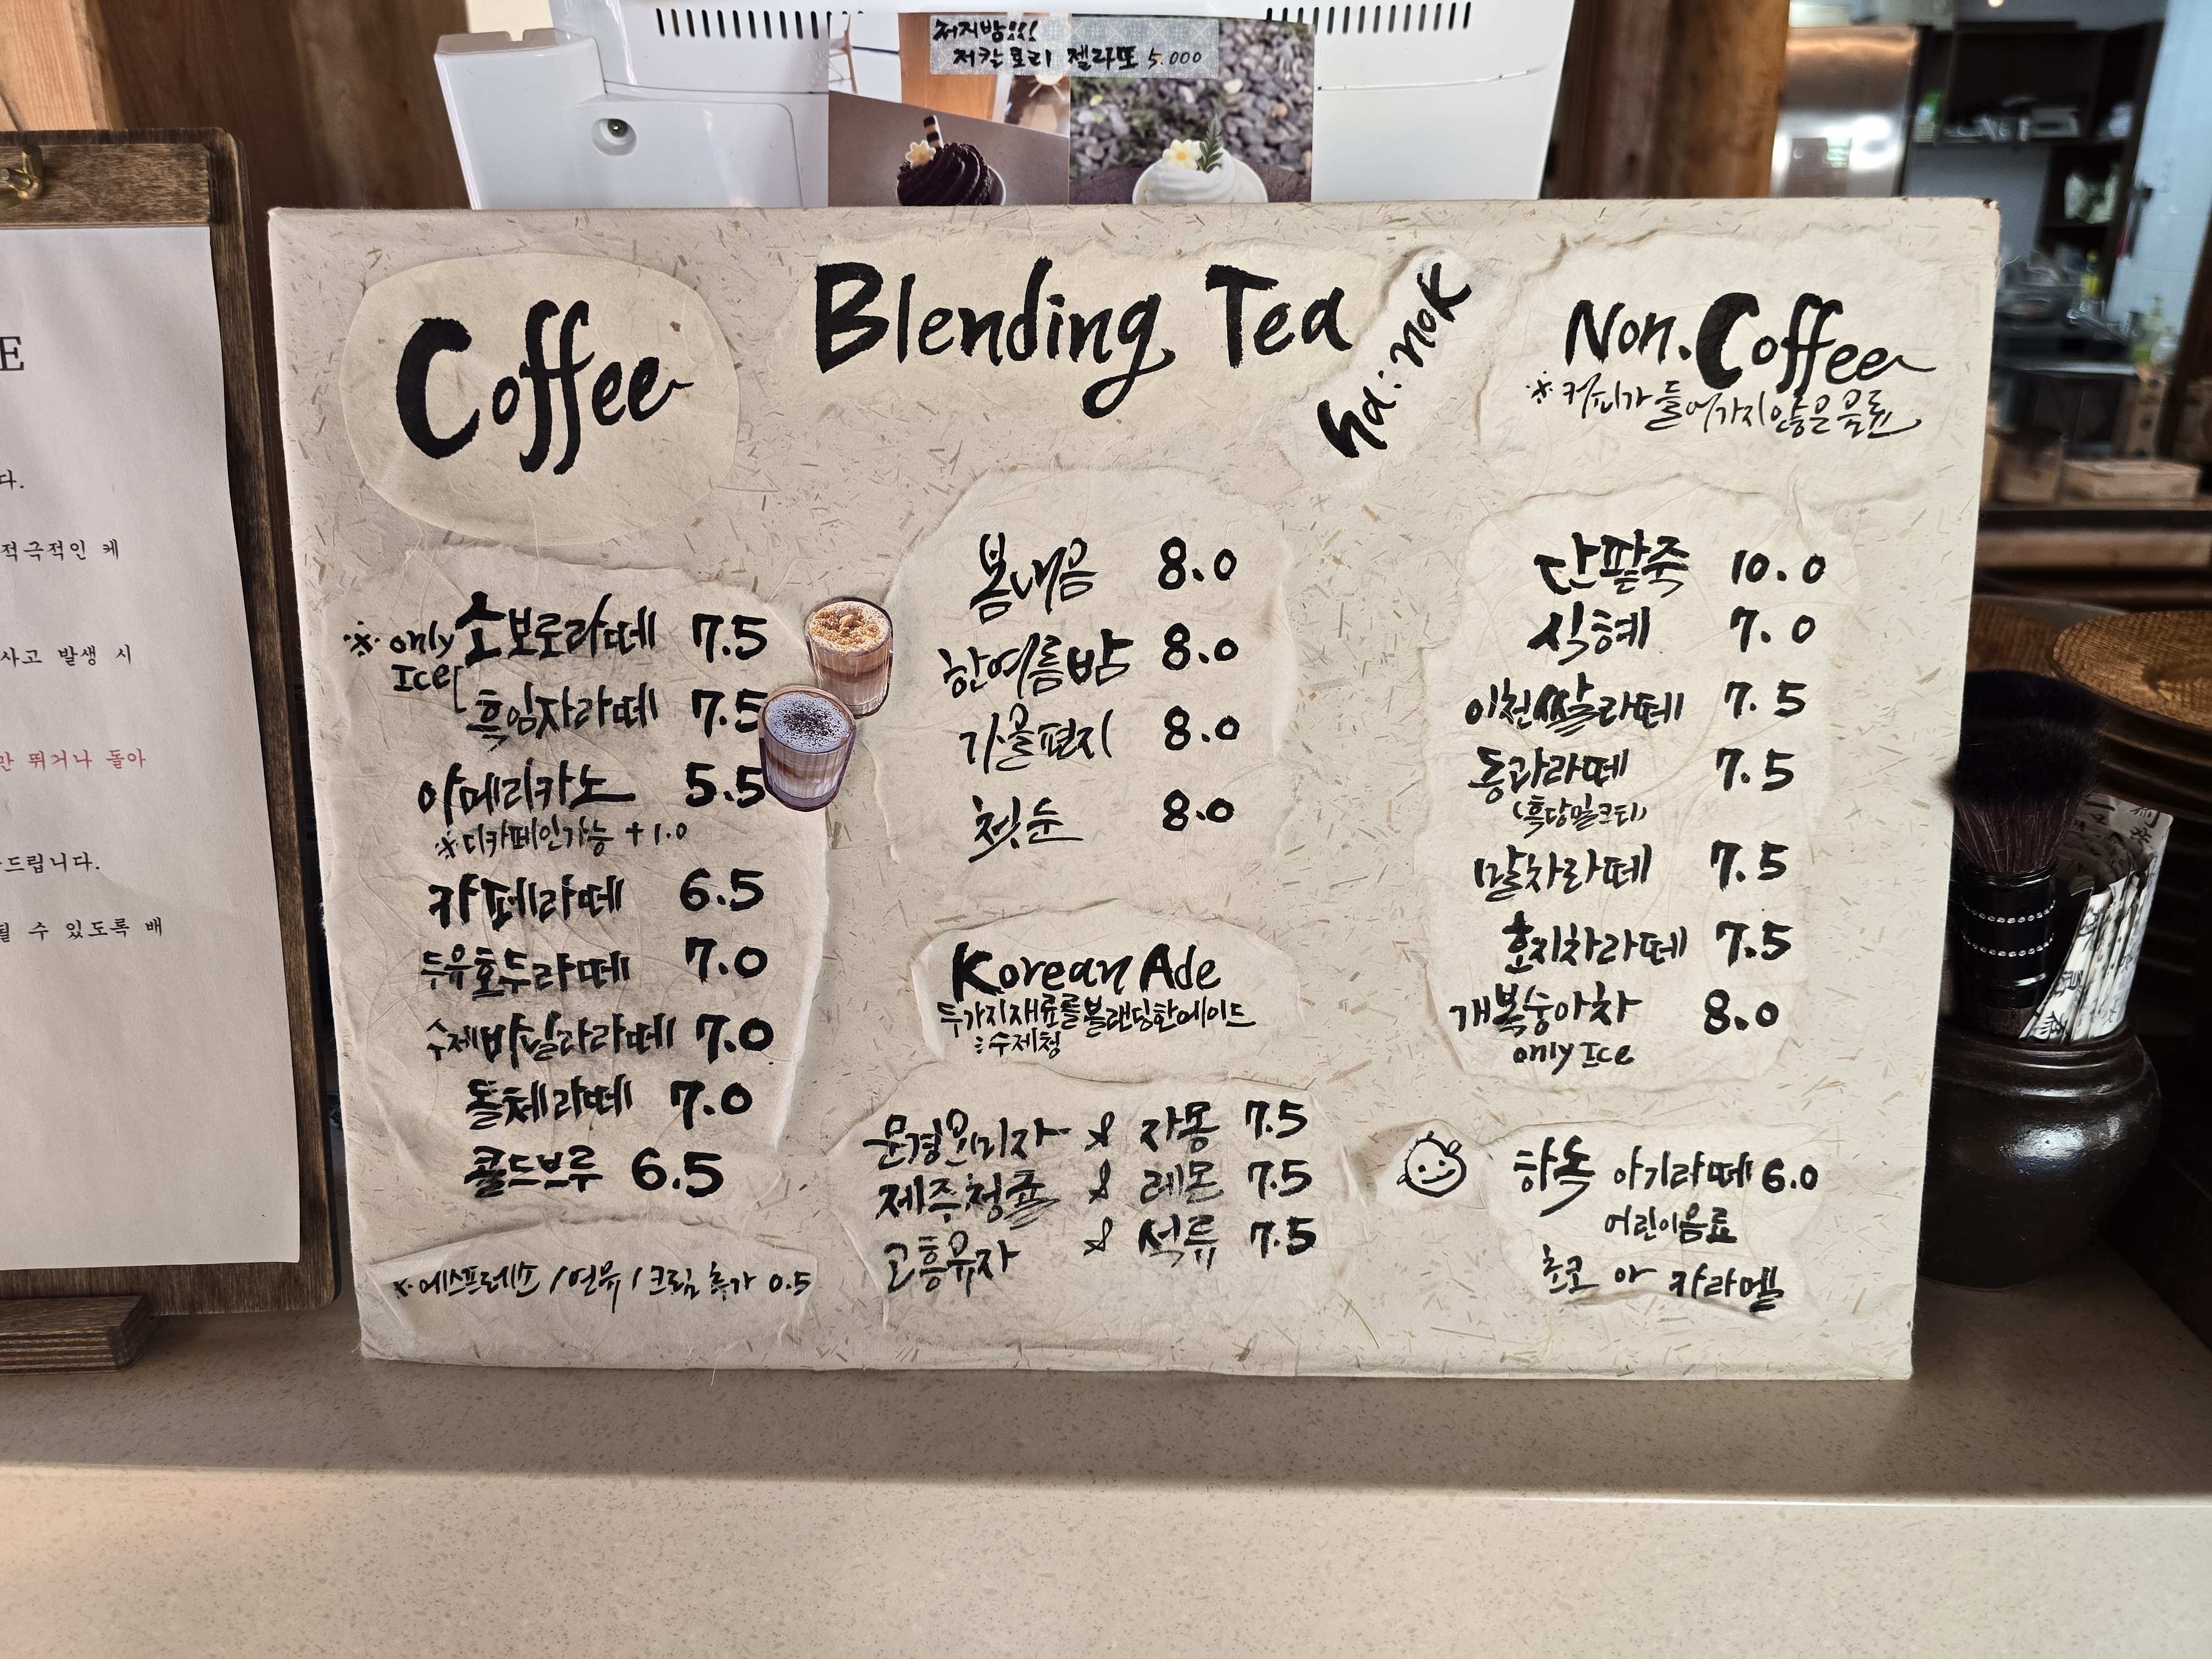 저지방!!!
저칼로리 젤라또 5.000
E
다.
적극적인 케
사고 발생 시
만 뛰거나 돌아
드립니다.
될 수 있도록 배
Coffee
※ only Ice
소보로라떼 7.5
흑임자라떼 7.5
아메리카노 5.5
※디카페인가능 +1.0
카페라떼 6.5
두유호두라떼 7.0
수제바닐라라떼 7.0
돌체라떼 7.0
콜드브루 6.5
※에스프레소/연유/크림 추가 0.5
Blending Tea
ha:nok
봄내음 8.0
한여름밤 8.0
가을편지 8.0
첫눈 8.0
Korean Ade
두가지재료를블랜딩한에이드
:수제청
문경오미자 & 자몽 7.5
제주청귤 & 레몬 7.5
고흥유자 & 석류 7.5
Non.Coffee
※커피가 들어가지않은음료
단팥죽 10.0
식혜 7.0
이천쌀라떼 7.5
동과라떼 7.5
(흑당밀크티)
말차라떼 7.5
호지차라떼 7.5
개복숭아차 8.0
only Ice
하녹 아기라떼 6.0
어린이음료
초코 or 카라멜